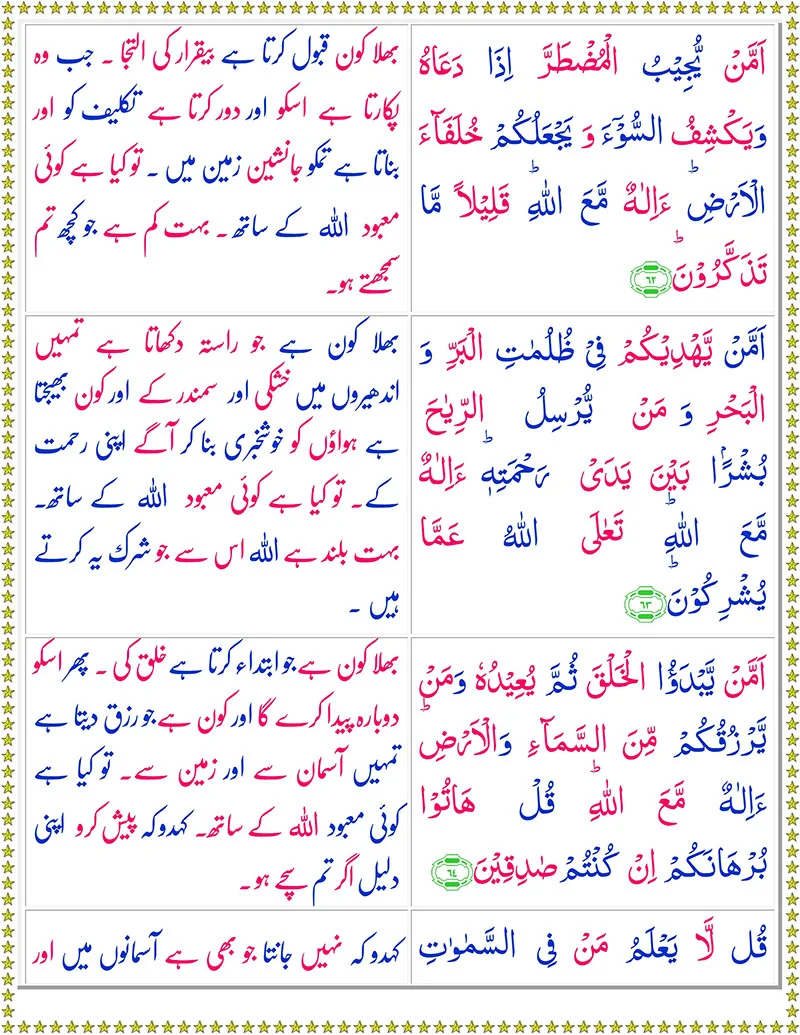 اَمَّنۡ يُّجِيۡبُ الۡمُضۡطَرَّ اِذَا دَعَاهُ
وَيَكۡشِفُ السُّوۡٓءَ وَ يَجۡعَلُكُمۡ خُلَفَآءَ
الۡاَرۡضِ ؕ ءَاِلٰـهٌ مَّعَ اللّٰهِ ؕ قَلِيۡلاً مَّا
تَذَكَّرُوۡنَ ؕ ﴿۶۲﴾
بھلا کون قبول کرتا ہے بیقرار کی التجا ۔ جب وہ
پکارتا ہے اسکو اور دور کرتا ہے تکلیف کو اور
بناتا ہے تمکو جانشین زمین میں ۔ تو کیا ہے کوئی
معبود اللہ کے ساتھ۔ بہت کم ہے جو کچھ تم
سمجھتے ہو۔
اَمَّنۡ يَّهۡدِيۡكُمۡ فِىۡ ظُلُمٰتِ الۡبَرِّ وَ
الۡبَحۡرِ وَ مَنۡ يُّرۡسِلُ الرِّيٰحَ
بُشۡرًۢا بَيۡنَ يَدَىۡ رَحۡمَتِهٖ ؕ ءَاِلٰـهٌ
مَّعَ اللّٰهِ ؕ تَعٰلَى اللّٰهُ عَمَّا
يُشۡرِكُوۡنَ ؕ ﴿۶۳﴾
بھلا کون ہے جو راستہ دکھاتا ہے تمہیں
اندھیروں میں خشکی اور سمندر کے اور کون بھیجتا
ہے ہواؤں کو خوشخبری بنا کر آگے اپنی رحمت
کے۔ تو کیا ہے کوئی معبود اللہ کے ساتھ۔
بہت بلند ہے اللہ اس سے جو شرک یہ کرتے
ہیں ۔
اَمَّنۡ يَّبۡدَؤُا الۡخَلۡقَ ثُمَّ يُعِيۡدُهٗ وَمَنۡ
يَّرۡزُقُكُمۡ مِّنَ السَّمَآءِ وَالۡاَرۡضِ ؕ
ءَاِلٰـهٌ مَّعَ اللّٰهِ ؕ قُلۡ هَاتُوۡا
بُرۡهَانَكُمۡ اِنۡ كُنۡتُمۡ صٰدِقِيۡنَ ﴿۶۴﴾
بھلا کون ہے جو ابتداء کرتا ہے خلق کی ۔ پھر اسکو
دوبارہ پیدا کرے گا اور کون ہے جو رزق دیتا ہے
تمہیں آسمان سے اور زمین سے۔ تو کیا ہے
کوئی معبود اللہ کے ساتھ۔ کہدو کہ پیش کرو اپنی
دلیل اگر تم سچے ہو۔
قُل لَّا يَعۡلَمُ مَنۡ فِى السَّمٰوٰتِ
کہدو کہ نہیں جانتا جو بھی ہے آسمانوں میں اور